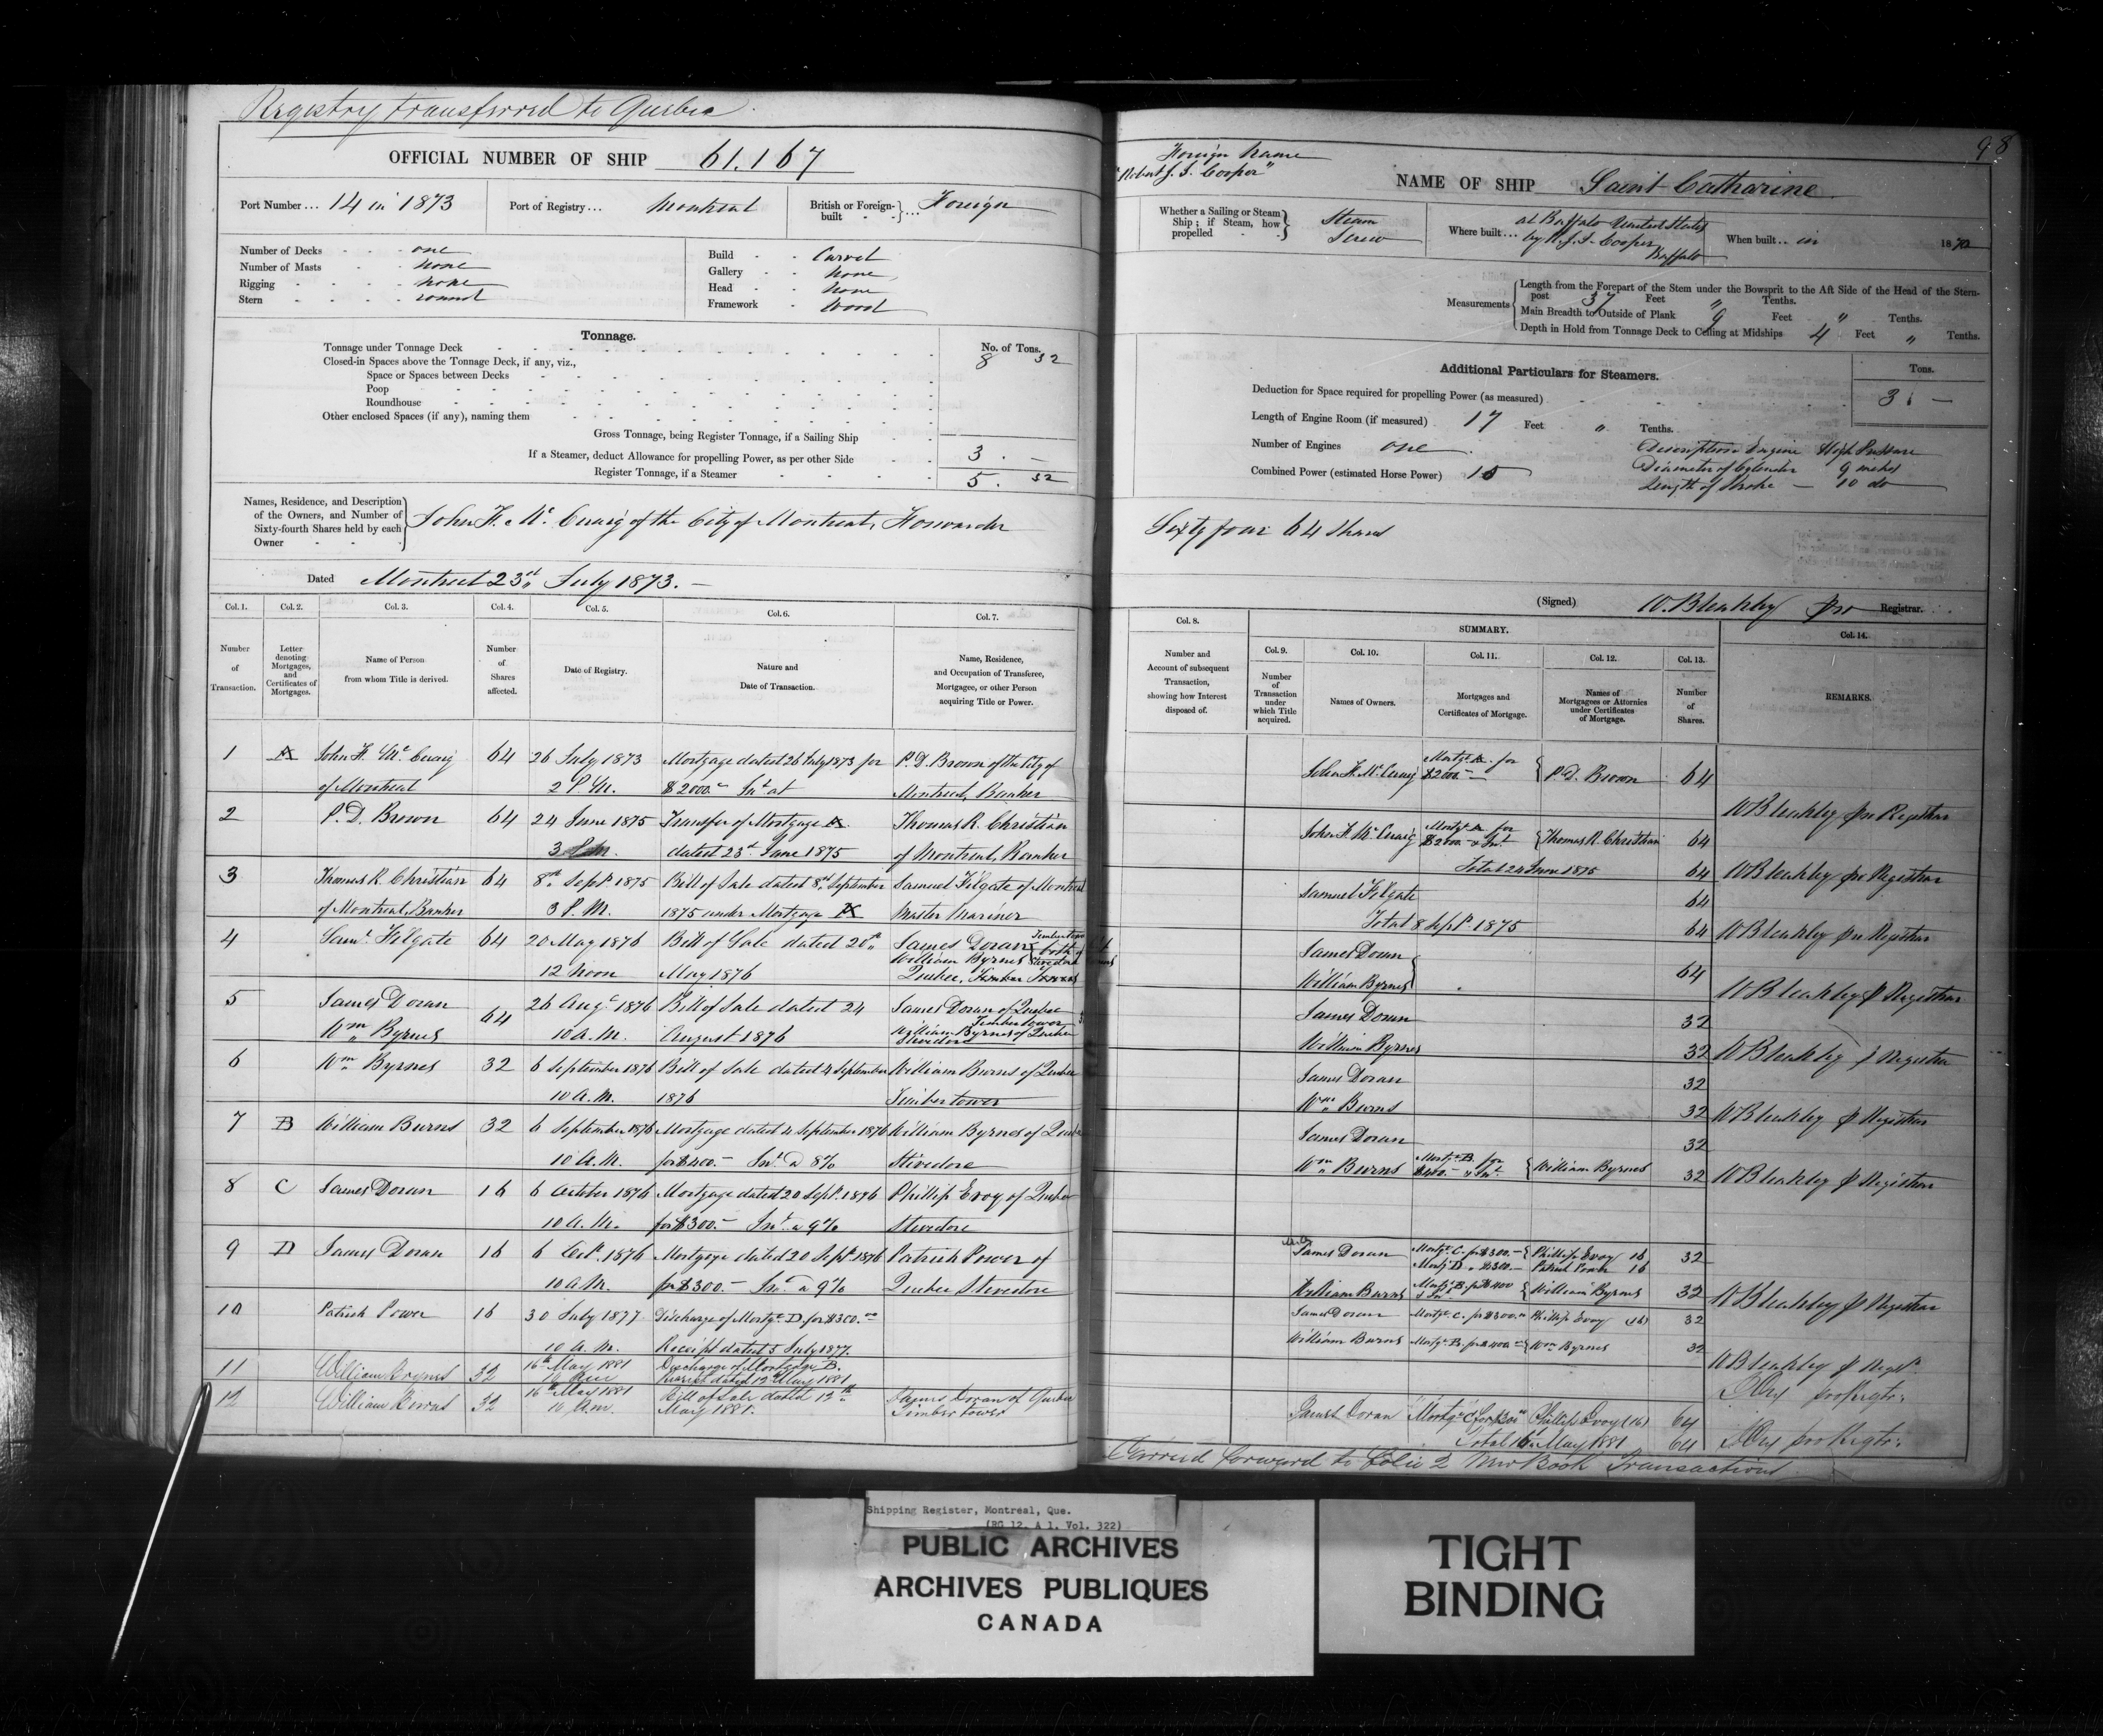 Registry transferred to Quebec
OFFICIAL NUMBER OF SHIP 61.167
Port Number ... 14 in 1873
Port of Registry ... Montreal
British or Foreign-built } ... Foreign
Number of Decks - - - one
Number of Masts - - none
Rigging - - - - none
Stern - - - - round
Build - - Carvel
Gallery - - None
Head - - None
Framework - Wood
Tonnage.
No. of Tons.
Tonnage under Tonnage Deck 8 32
Closed-in Spaces above the Tonnage Deck, if any, viz.,
Space or Spaces between Decks
Poop
Roundhouse
Other enclosed Spaces (if any), naming them
Gross Tonnage, being Register Tonnage, if a Sailing Ship
If a Steamer, deduct Allowance for propelling Power, as per other Side 3 . —
Register Tonnage, if a Steamer 5 . 32
Names, Residence, and Description
of the Owners, and Number of
Sixty-fourth Shares held by each
Owner
John F. Mc Cuaig of the City of Montreal, Forwarder
Dated Montreal 23rd July 1873. —
Col. 1. Col. 2. Col. 3. Col. 4. Col. 5. Col. 6. Col. 7.
Number of Transaction.
Letter denoting Mortgages, and Certificates of Mortgages.
Name of Person from whom Title is derived.
Number of Shares affected.
Date of Registry.
Nature and Date of Transaction.
Name, Residence, and Occupation of Transferee, Mortgagee, or other Person acquiring Title or Power.
1 A John F. Mc Cuaig 64 26 July 1873 Mortgage dated 26 July 1873 for P. D. Brown of the City of
of Montreal 2 P.M. $2000.– Int at Montreal, Banker
2 P. D. Brown 64 24 June 1875 Transfer of Mortgage A. Thomas R. Christian
3 P.M. dated 23d June 1875 of Montreal, Banker
3 Thomas R. Christian 64 8th Sept. 1875 Bill of Sale dated 8th September Samuel Filgate of Montreal
of Montreal, Banker 3 P.M. 1875 under Mortgage A Master Mariner
4 Saml Filgate 64 20 May 1876 Bill of Sale dated 20th James Doran
William Byrnes
12 Noon May 1876 Quebec, Timber Towers
5 James Doran 64 26 Augt 1876 Bill of Sale dated 24 James Doran of Quebec
Timber tower
Wm Byrnes 10 A.M. August 1876 William Byrnes of Quebec
Stevedore
6 Wm Byrnes 32 6 September 1876 Bill of Sale dated 4 September William Burns of Quebec
10 A.M. 1876 Timber tower
7 B William Burns 32 6 September 1876 Mortgage dated 4 September 1876 William Byrnes of Quebec
10 A.M. for $400.– Int @ 8% Stevedore
8 C James Doran 16 6 October 1876 Mortgage dated 20 Sept. 1876 Phillip Evoy of Quebec
10 A.M. for $300.– Int a 9% Stevedore
9 D James Doran 16 6 Oct. 1876 Mortgage dated 20 Sept 1876 Patrick Power of
10 A.M. for $300.– Int @ 9% Quebec Stevedore
10 Patrick Power 16 30 July 1877 Discharge of Mortge D. for $300.00
10 A.M. Receipt dated 5 July 1877.
11 William Byrnes 32 16th May 1881 Discharge of Mortgage B.
10 A.M. Receipt dated 12th May 1881
12 William Burns 32 16th May 1881 Bill of Sale dated 12th James Doran of Quebec
10 A.M. May 1881. Timber tower
98
Foreign Name
"Robert J. S. Cooper"
NAME OF SHIP Saint Catharine
Whether a Sailing or Steam Ship; if Steam, how propelled
Steam
Screw
Where built ... at Buffalo United States
by R. J. S. Cooper,
Buffalo
When built .. in 1872
Measurements
Length from the Forepart of the Stem under the Bowsprit to the Aft Side of the Head of the Stern-
post 37 Feet " Tenths.
Main Breadth to Outside of Plank 9 Feet " Tenths.
Depth in Hold from Tonnage Deck to Ceiling at Midships 4 Feet " Tenths.
Additional Particulars for Steamers.
Tons.
Deduction for Space required for propelling Power (as measured) 3 . —
Length of Engine Room (if measured) 17 Feet " Tenths.
Number of Engines one .
Combined Power (estimated Horse Power) 15
Description Engine High Pressure
Diameter of Cylinder 9 inches
Length of Stroke — 10 do
Sixty four 64 Shares
(Signed) W. Bleakley pro Registrar.
Col. 8. SUMMARY. Col. 14.
Col. 9. Col. 10. Col. 11. Col. 12. Col. 13.
Number and Account of subsequent Transaction, showing how Interest disposed of.
Number of Transaction under which Title acquired.
Names of Owners.
Mortgages and Certificates of Mortgage.
Names of Mortgagees or Attornies under Certificates of Mortgage.
Number of Shares.
REMARKS.
John F. Mc Cuaig Mortge A. for $2000.– { P. D. Brown 64
W Bleakley pro Registrar
John F. Mc Cuaig Mortge A for $2000.– & Int { Thomas R. Christian 64
Total 24 June 1875 64 W Bleakley pro Registrar
Samuel Filgate 64
Total 8 Sept. 1875 64 W Bleakley pro Registrar
James Doran
William Byrnes } 64
W Bleakley p Registrar
James Doran 32
William Byrnes 32 W Bleakley p Registrar
James Doran 32
Wm Burns 32 W Bleakley p Registrar
James Doran 32
Wm Burns Mortge B. for $400.– & Int { William Byrnes 32 W Bleakley p Registrar
James Doran Mortge C. for $300.– { Phillip Evoy 16 32
Mortg D. " $300.– Patrick Power 16
William Burns Mortge B. for $400 & Int { William Byrnes 32 W Bleakley p Registrar
James Doran Mortge C. for $300. Phillip Evoy (16) 32
William Burns Mortge B. for $400 Wm Byrnes 32
W Bleakley p Regr.
pro Regtr:
James Doran Mortge C for $300 Phillip Evoy (16) 64
Total 16 May 1881 64 pro Regtr:
Carried forward to Folio 2 New Book Transactions
Shipping Register, Montreal, Que.
(RG 12, A 1, Vol. 322)
PUBLIC ARCHIVES
ARCHIVES PUBLIQUES
CANADA
TIGHT
BINDING